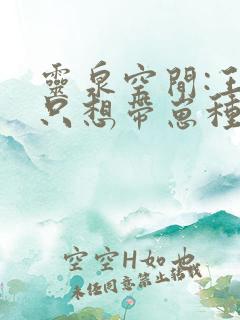 靈泉空間:王
只想帶崽種
空空H如也
未任同意禁止轉載